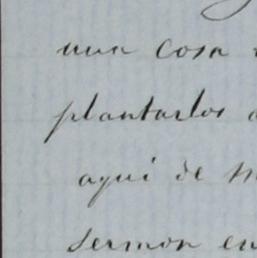 una cosa
plantarlos
aqui de
sermon en